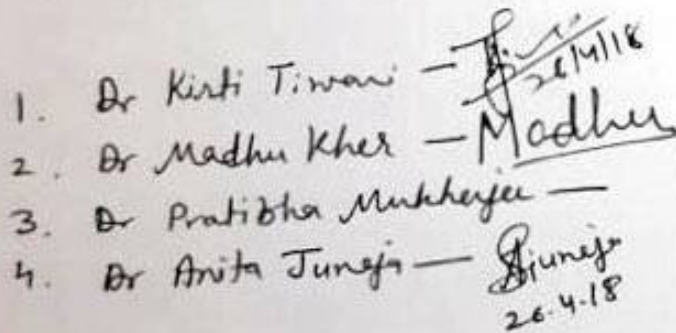 1. Dr Kirti Tiwari — 26/4/18
2. Dr Madhu Kher — Madhu
3. Dr Pratibha Mukherjee —
4. Dr Anita Juneja — Ajuneja
26.4.18